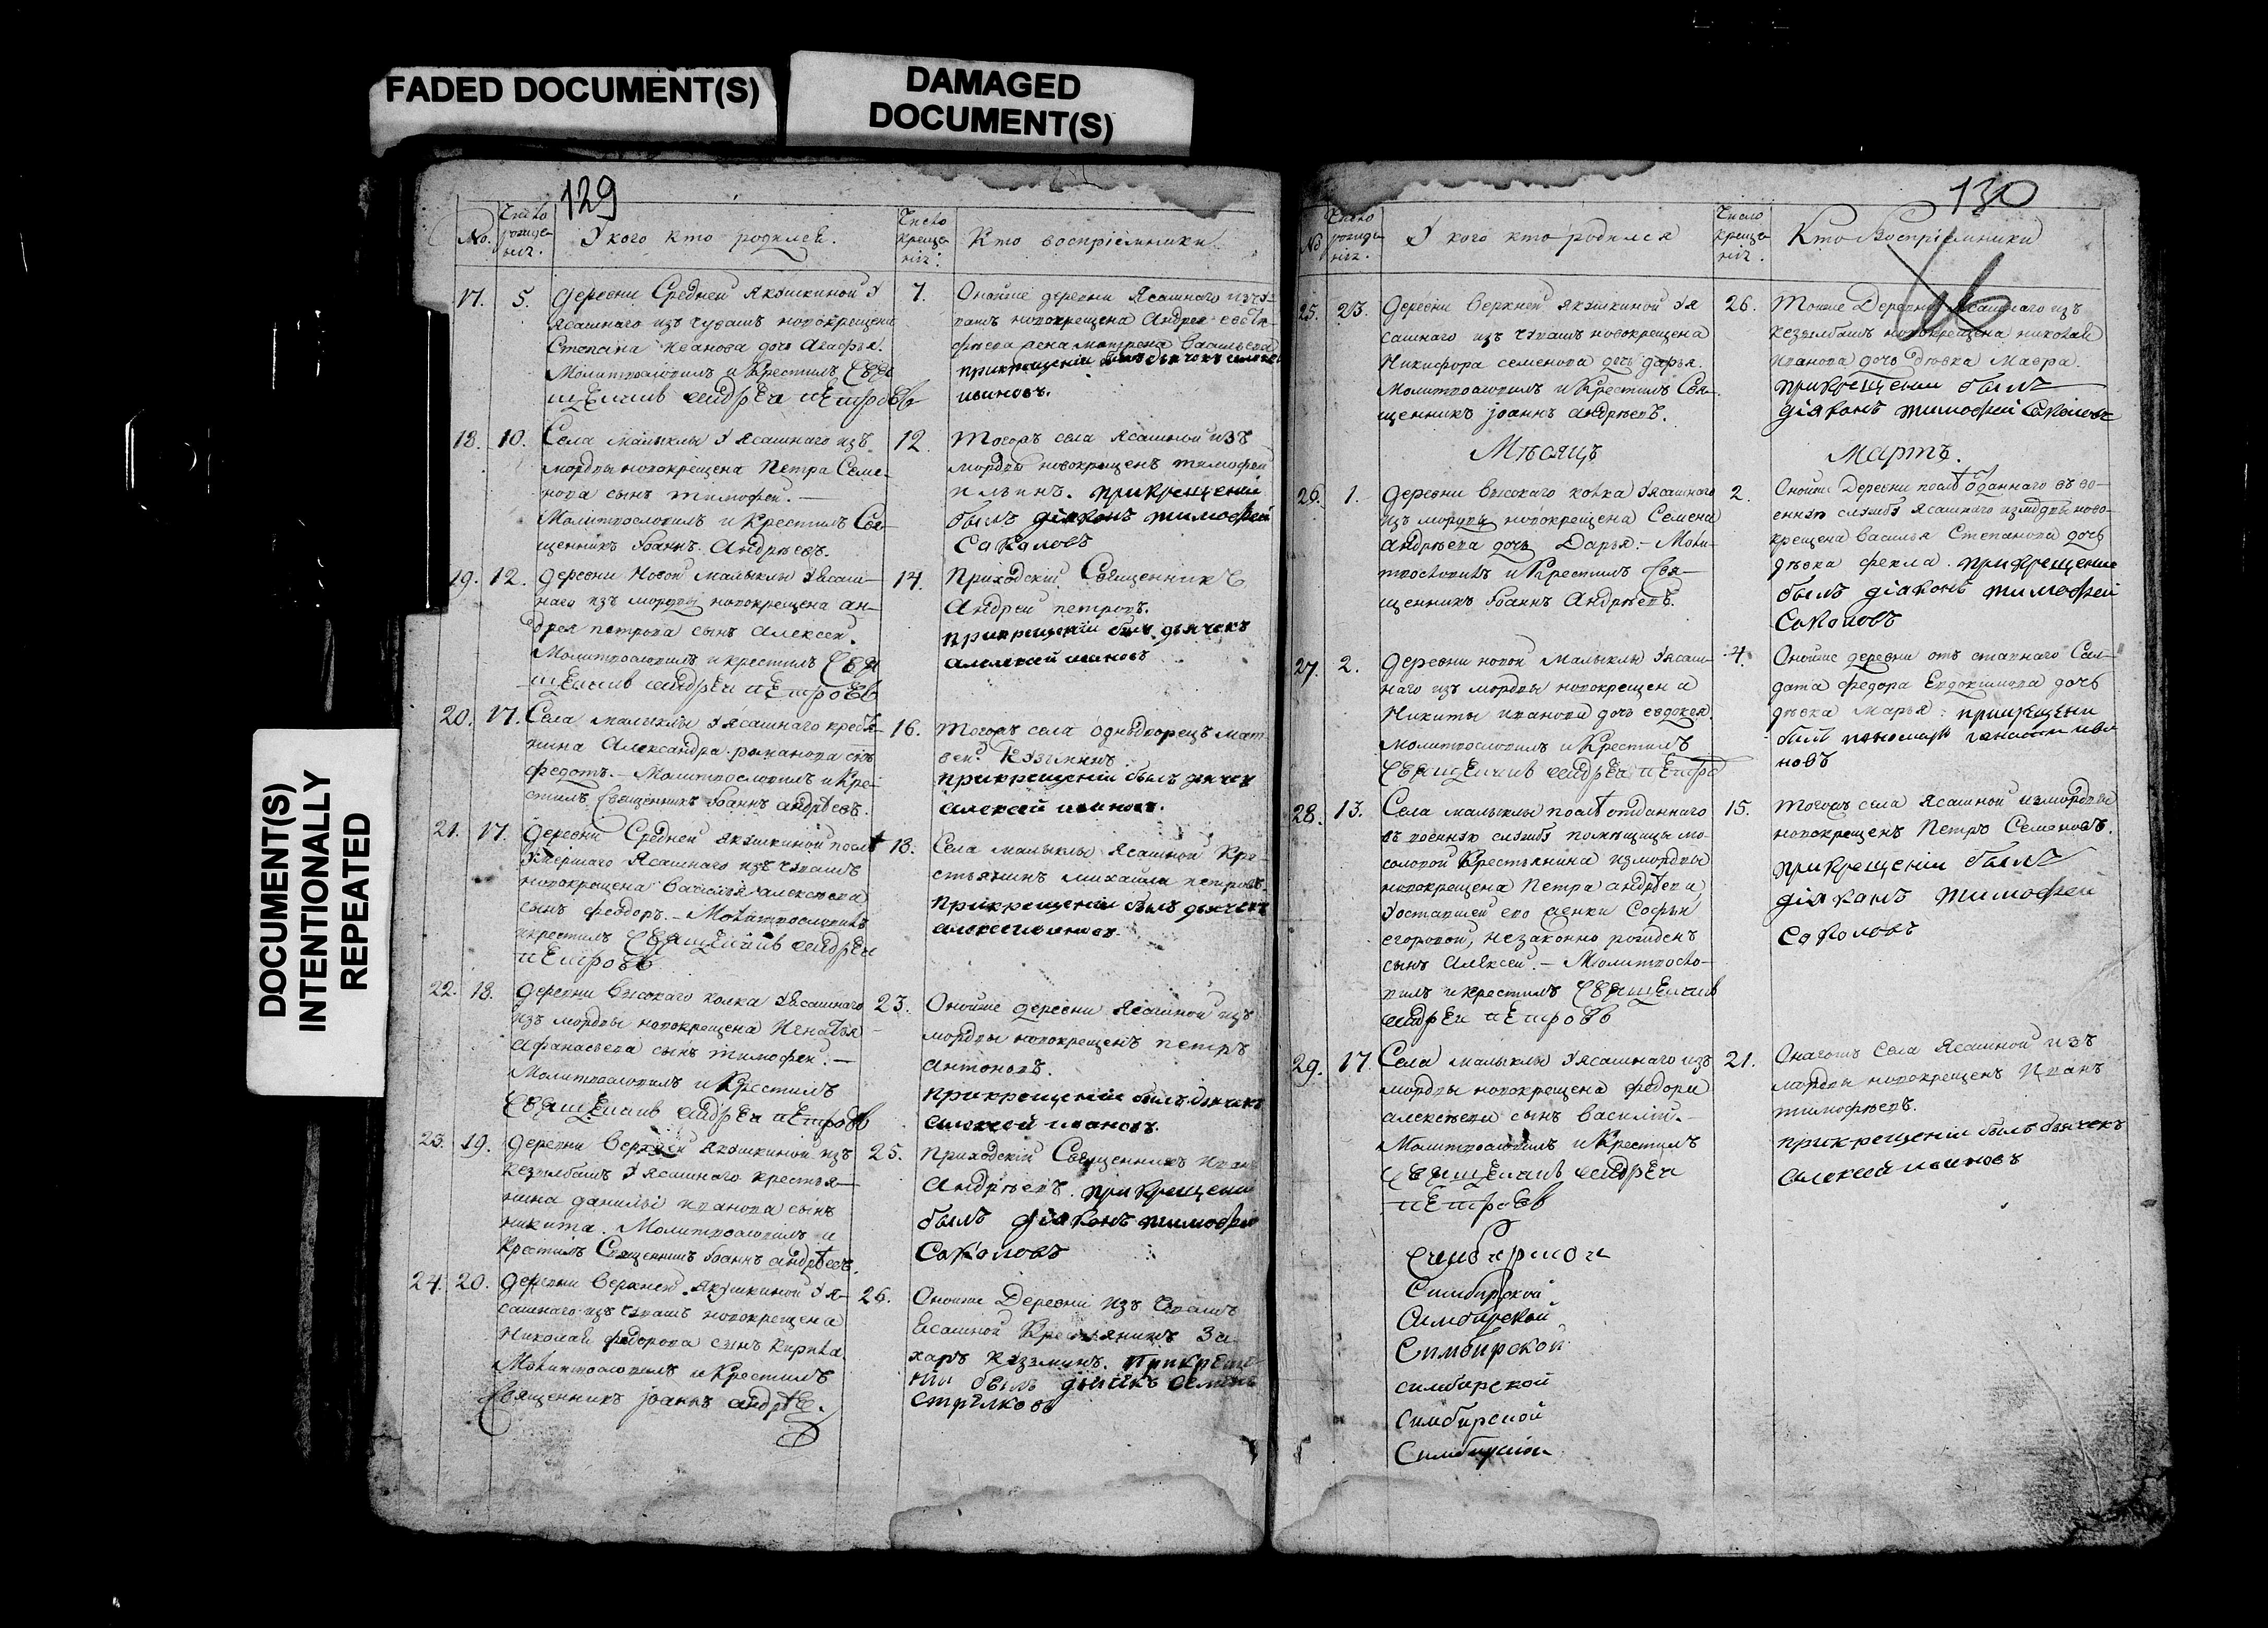 FADED DOCUMENT(S)
DAMAGED
DOCUMENT(S)
DOCUMENT(S)
INTENTIONALLY
REPEATED
129
№.
Число
рожде-
нія.
У кого кто родился.
Число
креще-
нія.
Кто воспріемники.
17.
5.
деревни Средней Якушкиной у
ясашнаго изъ чувашъ новокрещена
Степана Иванова дочь Агафья.
Молитвословилъ и Крестилъ Свя
щенникъ андрей петровъ
7.
Оной же деревни Ясашнаго изъ чу-
вашъ новокрещена Андрея
жена матрена васильева
при крещеніи былъ дьячекъ
ивановъ.
18.
10.
Села малыклы у ясашнаго изъ
мордвы новокрещена Петра Семе-
нова сынъ тимофей. —
Молитвословилъ и Крестилъ Свя-
щенникъ Іоаннъ Андрѣевъ.
12.
Тогожъ села ясашной изъ
мордвы новокрещенъ тимофей
ильинъ. при крещеніи
былъ діяконъ тимофей
Соколовъ
19.
12.
деревни Новой малыклы у ясаш-
наго изъ мордвы новокрещена ан-
дрея петрова сынъ алексей.
Молитвословилъ и крестилъ Свя
щенникъ андрей петровъ
14.
Приходскій Священникъ
Андрей петровъ.
при крещеніи былъ дьячекъ
алексей ивановъ
20.
17.
Села малыклы у ясашнаго кресть-
янина Александра романова сынъ
федотъ. — Молитвословилъ и Кре-
стилъ Священникъ Іоаннъ андрѣевъ.
16.
Тогожъ села однодворецъ мат
вей Кузминъ.
при крещеніи былъ дячек
алексей ивановъ.
21.
17.
деревни Средней якушкиной послѣ
умершаго Ясашнаго изъ чувашъ
новокрещена василья алексѣева
сынъ феодоръ. — Молитвословилъ
и крестилъ Священникъ андрей
петровъ
18.
Села малыклы ясашной Кре-
стьянинъ михаила петровъ.
при крещеніи былъ дьячекъ
алексей ивановъ.
22.
18.
деревни высокаго колка у ясашнаго
изъ мордвы новокрещена Игнатья
афанасьева сынъ тимофей. —
Молитвословилъ и Крестилъ
Священникъ андрей петровъ
23.
Оной же деревни ясашной изъ
мордвы новокрещенъ петръ
антоновъ.
при крещеніи былъ дьячекъ
алексей ивановъ.
23.
19.
деревни верхней якушкиной изъ
кезылбашъ у ясашнаго крестья-
нина данилы иванова сынъ
никита. Молитвословилъ и
Крестилъ Священникъ Іоаннъ андрѣевъ.
25.
Приходскій Священникъ иванъ
андрѣевъ. при крещени
былъ діяконъ тимофей
Соколовъ
24.
20.
деревни верхней якушкиной у я-
сашнаго изъ чувашъ новокрещена
Николая федорова сынъ кирила.
Молитвословилъ и Крестилъ
Священникъ іоаннъ андрѣев.
26.
Оной же деревни изъ чувашъ
ясашной Крестьянинъ За-
харъ кузминъ. при креще-
нии былъ дьячекъ
стрелковъ
130
№
Число
рожде-
нія.
У кого кто родился
Число
креще-
нія.
Кто воспріемники
25.
23.
деревни верхней якушкиной у я
сашнаго изъ чувашъ новокрещена
Никифора семенова дочь дарья.
Молитвословилъ и Крестилъ Свя-
щенникъ іоаннъ андрѣевъ.
26.
Тойже деревни ясашнаго изъ
кезылбашъ новокрещена николая
иванова дочь дѣвка мавра.
при крещении былъ
діяконъ тимофей Соколовъ
Мѣсяцъ
Мартъ.
26.
1.
деревни высокаго колка у ясашнаго
изъ мордвы новокрещена Семена
андрѣева дочь Дарья. — Моли-
твословилъ и Крестилъ Свя-
щенникъ Іоаннъ Андрѣевъ.
2.
Оной же деревни послѣ отданнаго въ во-
енную службу ясашнаго из мордвы ново-
крещена василья Степанова дочь
дѣвка фекла. при крещение
былъ діаконъ тимофей
Соколовъ
27.
2.
деревни новой малыклы у ясаш-
наго изъ мордвы новокрещена
Никиты иванова дочь евдокея.
Молитвословилъ и Крестилъ
Священникъ андрей петро
4.
Оной же деревни отъ ставнаго Сал-
дата федора Евдокимова дочь
дѣвка Марья. при крещени
былъ пономарь ива
новъ
28.
13.
Села малыклы послѣ отданнаго
въ военную службу помѣщицы мо-
соловой Крестьянина из мордвы
новокрещена Петра андрѣева,
у оставшей его женки Софьи
егоровой, незаконно рожденъ
сынъ алексей. — Молитвосло-
вилъ и крестилъ Священникъ
андрей петровъ
15.
Тогожъ села ясашной из мордвы
новокрещенъ Петръ Семеновъ.
при крещеніи былъ
діяконъ тимофей
Соколовъ
29.
17.
Села малыклы у ясашнаго изъ
мордвы новокрещена федора
алексѣева сынъ василій. —
Молитвословилъ и Крестилъ
Священникъ андрей
петровъ
21.
Онагожъ села ясашной изъ
мордвы новокрещенъ Иванъ
тимофѣевъ.
при крещеніи былъ дьячекъ
алексей ивановъ
Симбирской
Симбирской
Симбирской
симбирской
Симбирской
Симбирской